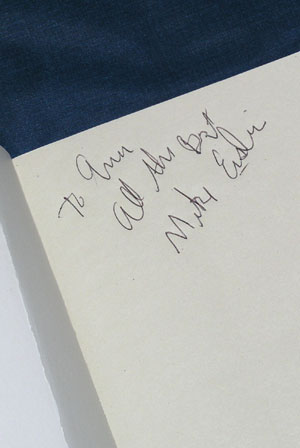 To Ann
All the Best
Mike